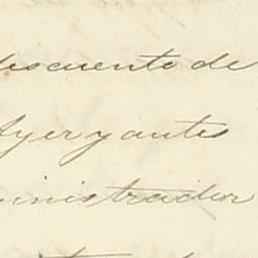 descuento de
Ayer y antes
ministrador